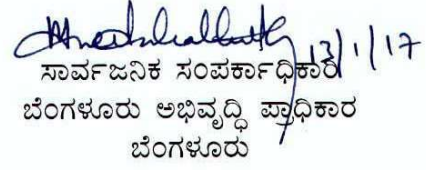 13/1/17
ಸಾರ್ವಜನಿಕ ಸಂಪರ್ಕಾಧಿಕಾರಿ
ಬೆಂಗಳೂರು ಅಭಿವೃದ್ಧಿ ಪ್ರಾಧಿಕಾರ
ಬೆಂಗಳೂರು